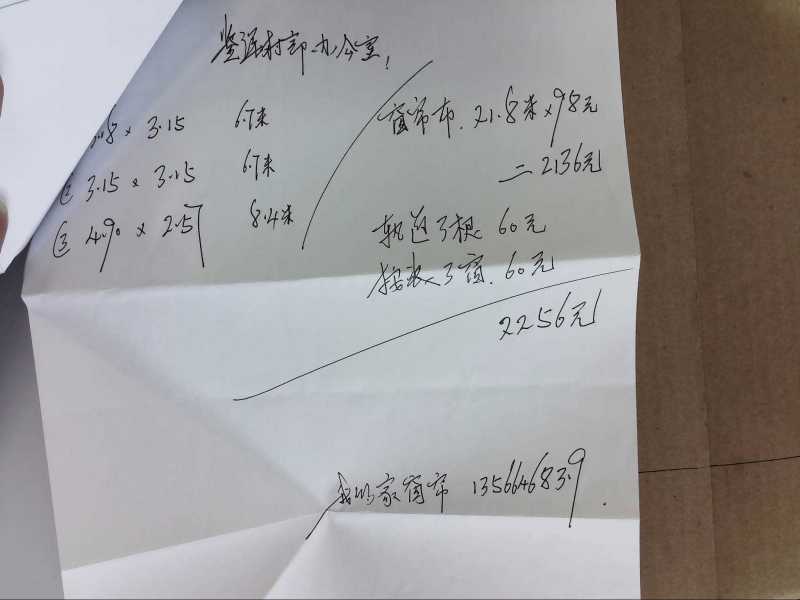 村部办公室!
.18 x 3.15 6.7米
② 3.15 x 3.15 6.7米
③ 4.90 x 2.57 8.4米
窗帘布. 21.8米x98元
=2136元
轨道3根 60元
按装人3窗. 60元
2256元
我的家窗帘 1356646839.